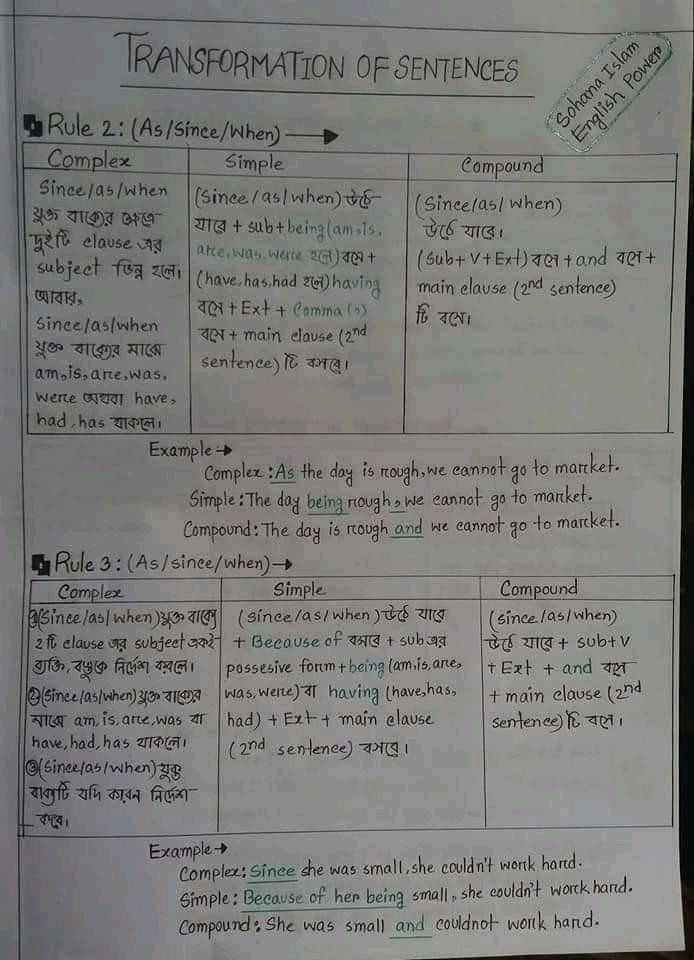 TRANSFORMATION OF SENTENCES
Sohana Islam
English Power
Rule 2: (As/Since/When)
Complex
Since/as/when
যুক্ত বাক্যের ক্ষেত্রে
দুইটি clause এর
subject ভিন্ন হলে।
আবার,
Since/as/when
যুক্ত বাক্যের মাঝে
am,is,are,was,
were অথবা have,
had,has থাকলে।
Simple
(Since/as/when) উঠে
যাবে + sub+being(am,is,
are,was,were হলে) বসে +
(have,has,had হলে) having
বসে + Ext + Comma (,)
বসে + main clause (2nd
sentence) টি বসবে।
Compound
(Since/as/when)
উঠে যাবে।
(Sub+V+Ext) বসে + and বসে +
main clause (2nd sentence)
টি বসে।
Example→
Complex: As the day is rough, we cannot go to market.
Simple: The day being rough, we cannot go to market.
Compound: The day is rough and we cannot go to market.
Rule 3: (As/since/when)→
Complex
①(Since/as/when) যুক্ত বাক্যে
2 টি clause এর subject একই
ব্যক্তি, বস্তুকে নির্দেশ করলে।
②(Since/as/when) যুক্ত বাক্যের
মাঝে am, is, are, was বা
have, had, has থাকলে।
③(Since/as/when) যুক্ত
বাক্যটি যদি কারন নির্দেশ
করে।
Simple
(since/as/when) উঠে যাবে
+ Because of বসবে + sub এর
possesive form+being (am,is,are,
was, were) বা having (have,has,
had) + Ext + main clause
(2nd sentence) বসবে।
Compound
(since/as/when)
উঠে যাবে + sub+V
+ Ext + and বসে
+ main clause (2nd
sentence) টি বসে।
Example→
Complex: Since she was small, she couldn't work hard.
Simple: Because of her being small, she couldn't work hard.
Compound: She was small and couldnot work hard.